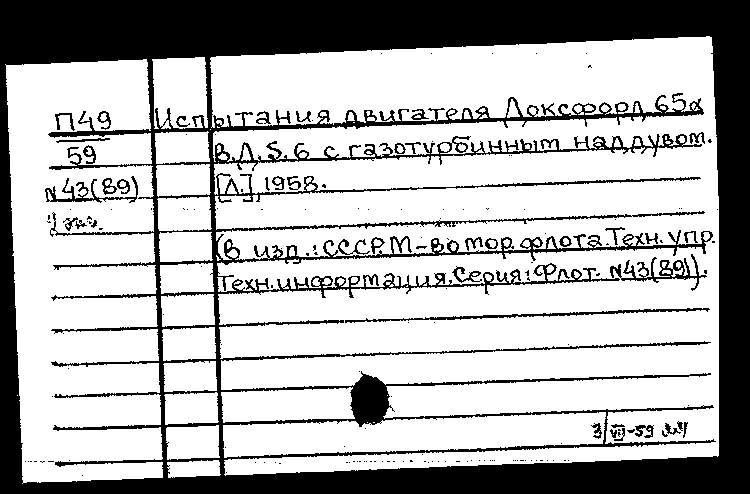 П49 Испытания двигателя Доксфорд 65α
59 В.Д.S.6 с газотурбинным наддувом.
N43(89) [Л.], 1958.
1 экз.
(В изд.: СССР. М-во мор. флота. Техн. упр.
Техн. информация. Серия: Флот. N43(89)).
3/VII-59